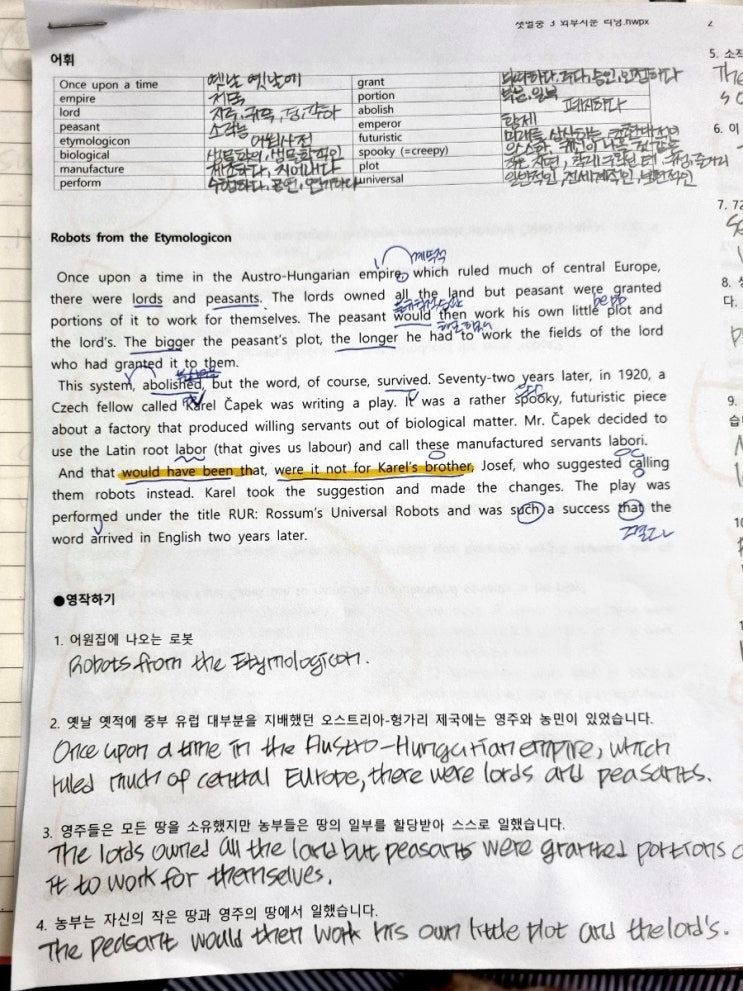 샛별중 3 외부지문 리딩.hwpx 2
어휘
Once upon a time 옛날 옛날에 grant 허락하다, 주다, 승인, 인정하다
empire 제국 portion 부분, 일부
lord 지주, 귀족, 경, 각하 abolish 폐지하다
peasant 소작농 emperor 황제
etymologicon 어원사전 futuristic 미래를 상상하는,
biological 생물학의, 생물학적인 spooky (=creepy) 으스스한, 귀신이 나올 것 같은
manufacture 제조하다, 지어내다 plot 작은 지면, 줄거리
perform 수행하다, 공연, 연기하다 universal 일반적인, 전세계적인, 보편적인
Robots from the Etymologicon
계속적
Once upon a time in the Austro-Hungarian empire, which ruled much of central Europe,
there were lords and peasants. The lords owned all the land but peasant were granted
portions of it to work for themselves. The peasant would then work his own little plot and
the lord's. The bigger the peasant's plot, the longer he had to work the fields of the lord
who had granted it to them.
This system, abolished, but the word, of course, survived. Seventy-two years later, in 1920, a
Czech fellow called Karel Čapek was writing a play. It was a rather spooky, futuristic piece
about a factory that produced willing servants out of biological matter. Mr. Čapek decided to
use the Latin root labor (that gives us labour) and call these manufactured servants labori.
And that would have been that, were it not for Karel's brother, Josef, who suggested calling
them robots instead. Karel took the suggestion and made the changes. The play was
performed under the title RUR: Rossum's Universal Robots and was such a success that the
word arrived in English two years later.
●영작하기
1. 어원집에 나오는 로봇
Robots from the Etymologicon.
2. 옛날 옛적에 중부 유럽 대부분을 지배했던 오스트리아-헝가리 제국에는 영주와 농민이 있었습니다.
Once upon a time in the Austro-Hungarian empire, which
ruled much of central Europe, there were lords and peasants.
3. 영주들은 모든 땅을 소유했지만 농부들은 땅의 일부를 할당받아 스스로 일했습니다.
The lords owned all the land but peasants were granted portions o
it to work for themselves.
4. 농부는 자신의 작은 땅과 영주의 땅에서 일했습니다.
The peasant would then work his own little plot and the lord's.
5. 소작
The
6. 이
7. 72
8.
다.
9.
습니